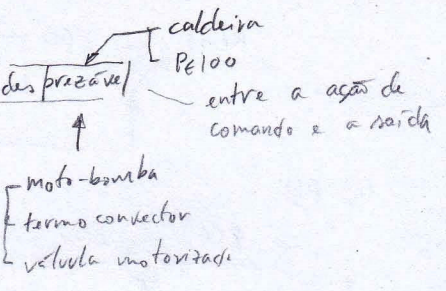 caldeira
PE100
desprezável
entre a ação de
comando e a saída
moto-bomba
termoconvector
válvula motorizada